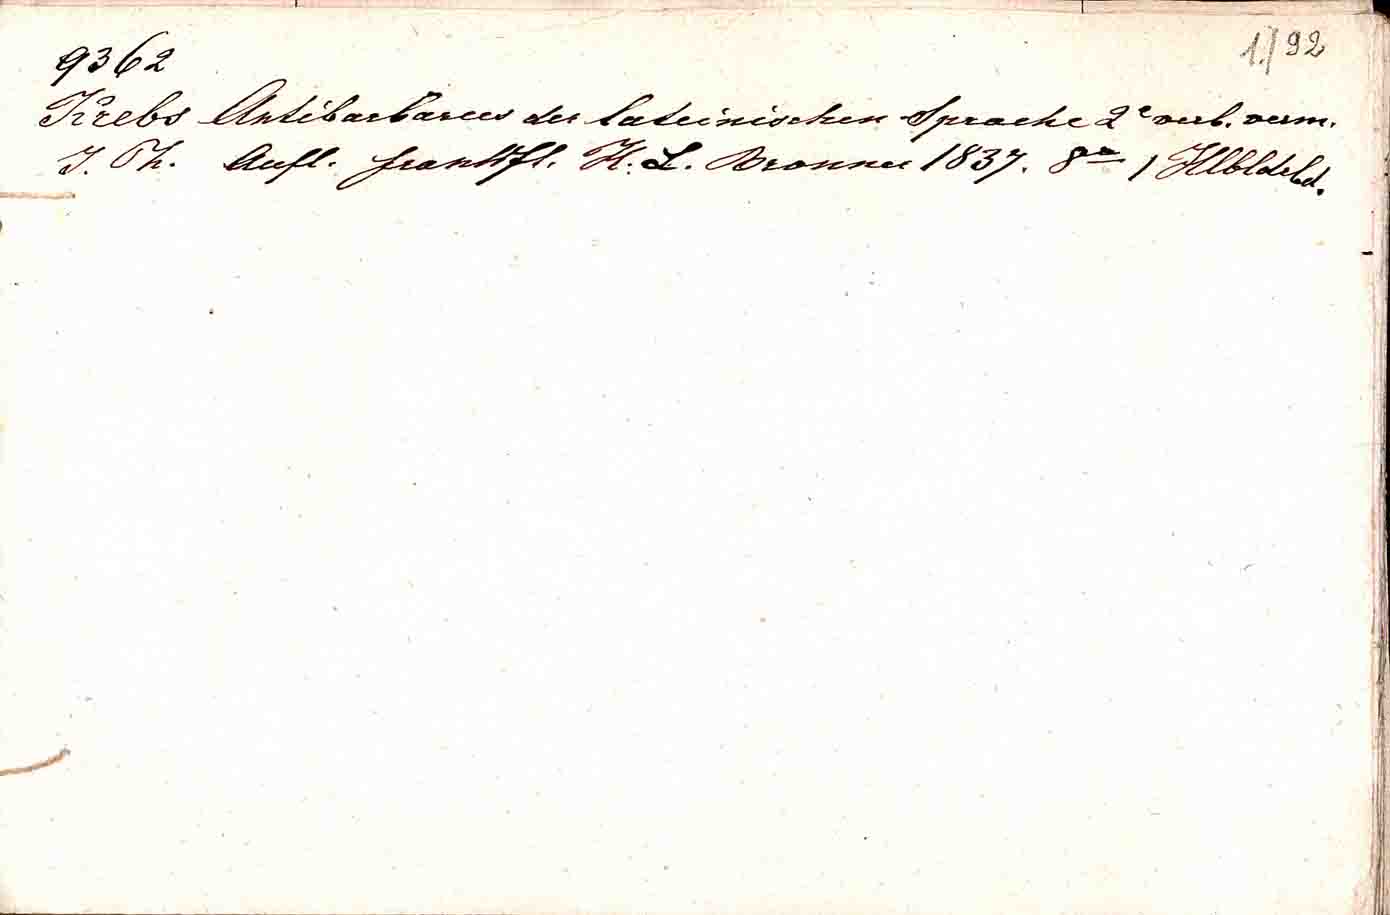 1./92
9362
Krebs Antibarbarus der lateinischen Sprache 2e verb. verm.
J. Ph. Aufl. frankft. H. L. Bronner 1837. 8o 1 Hlbldrbd.